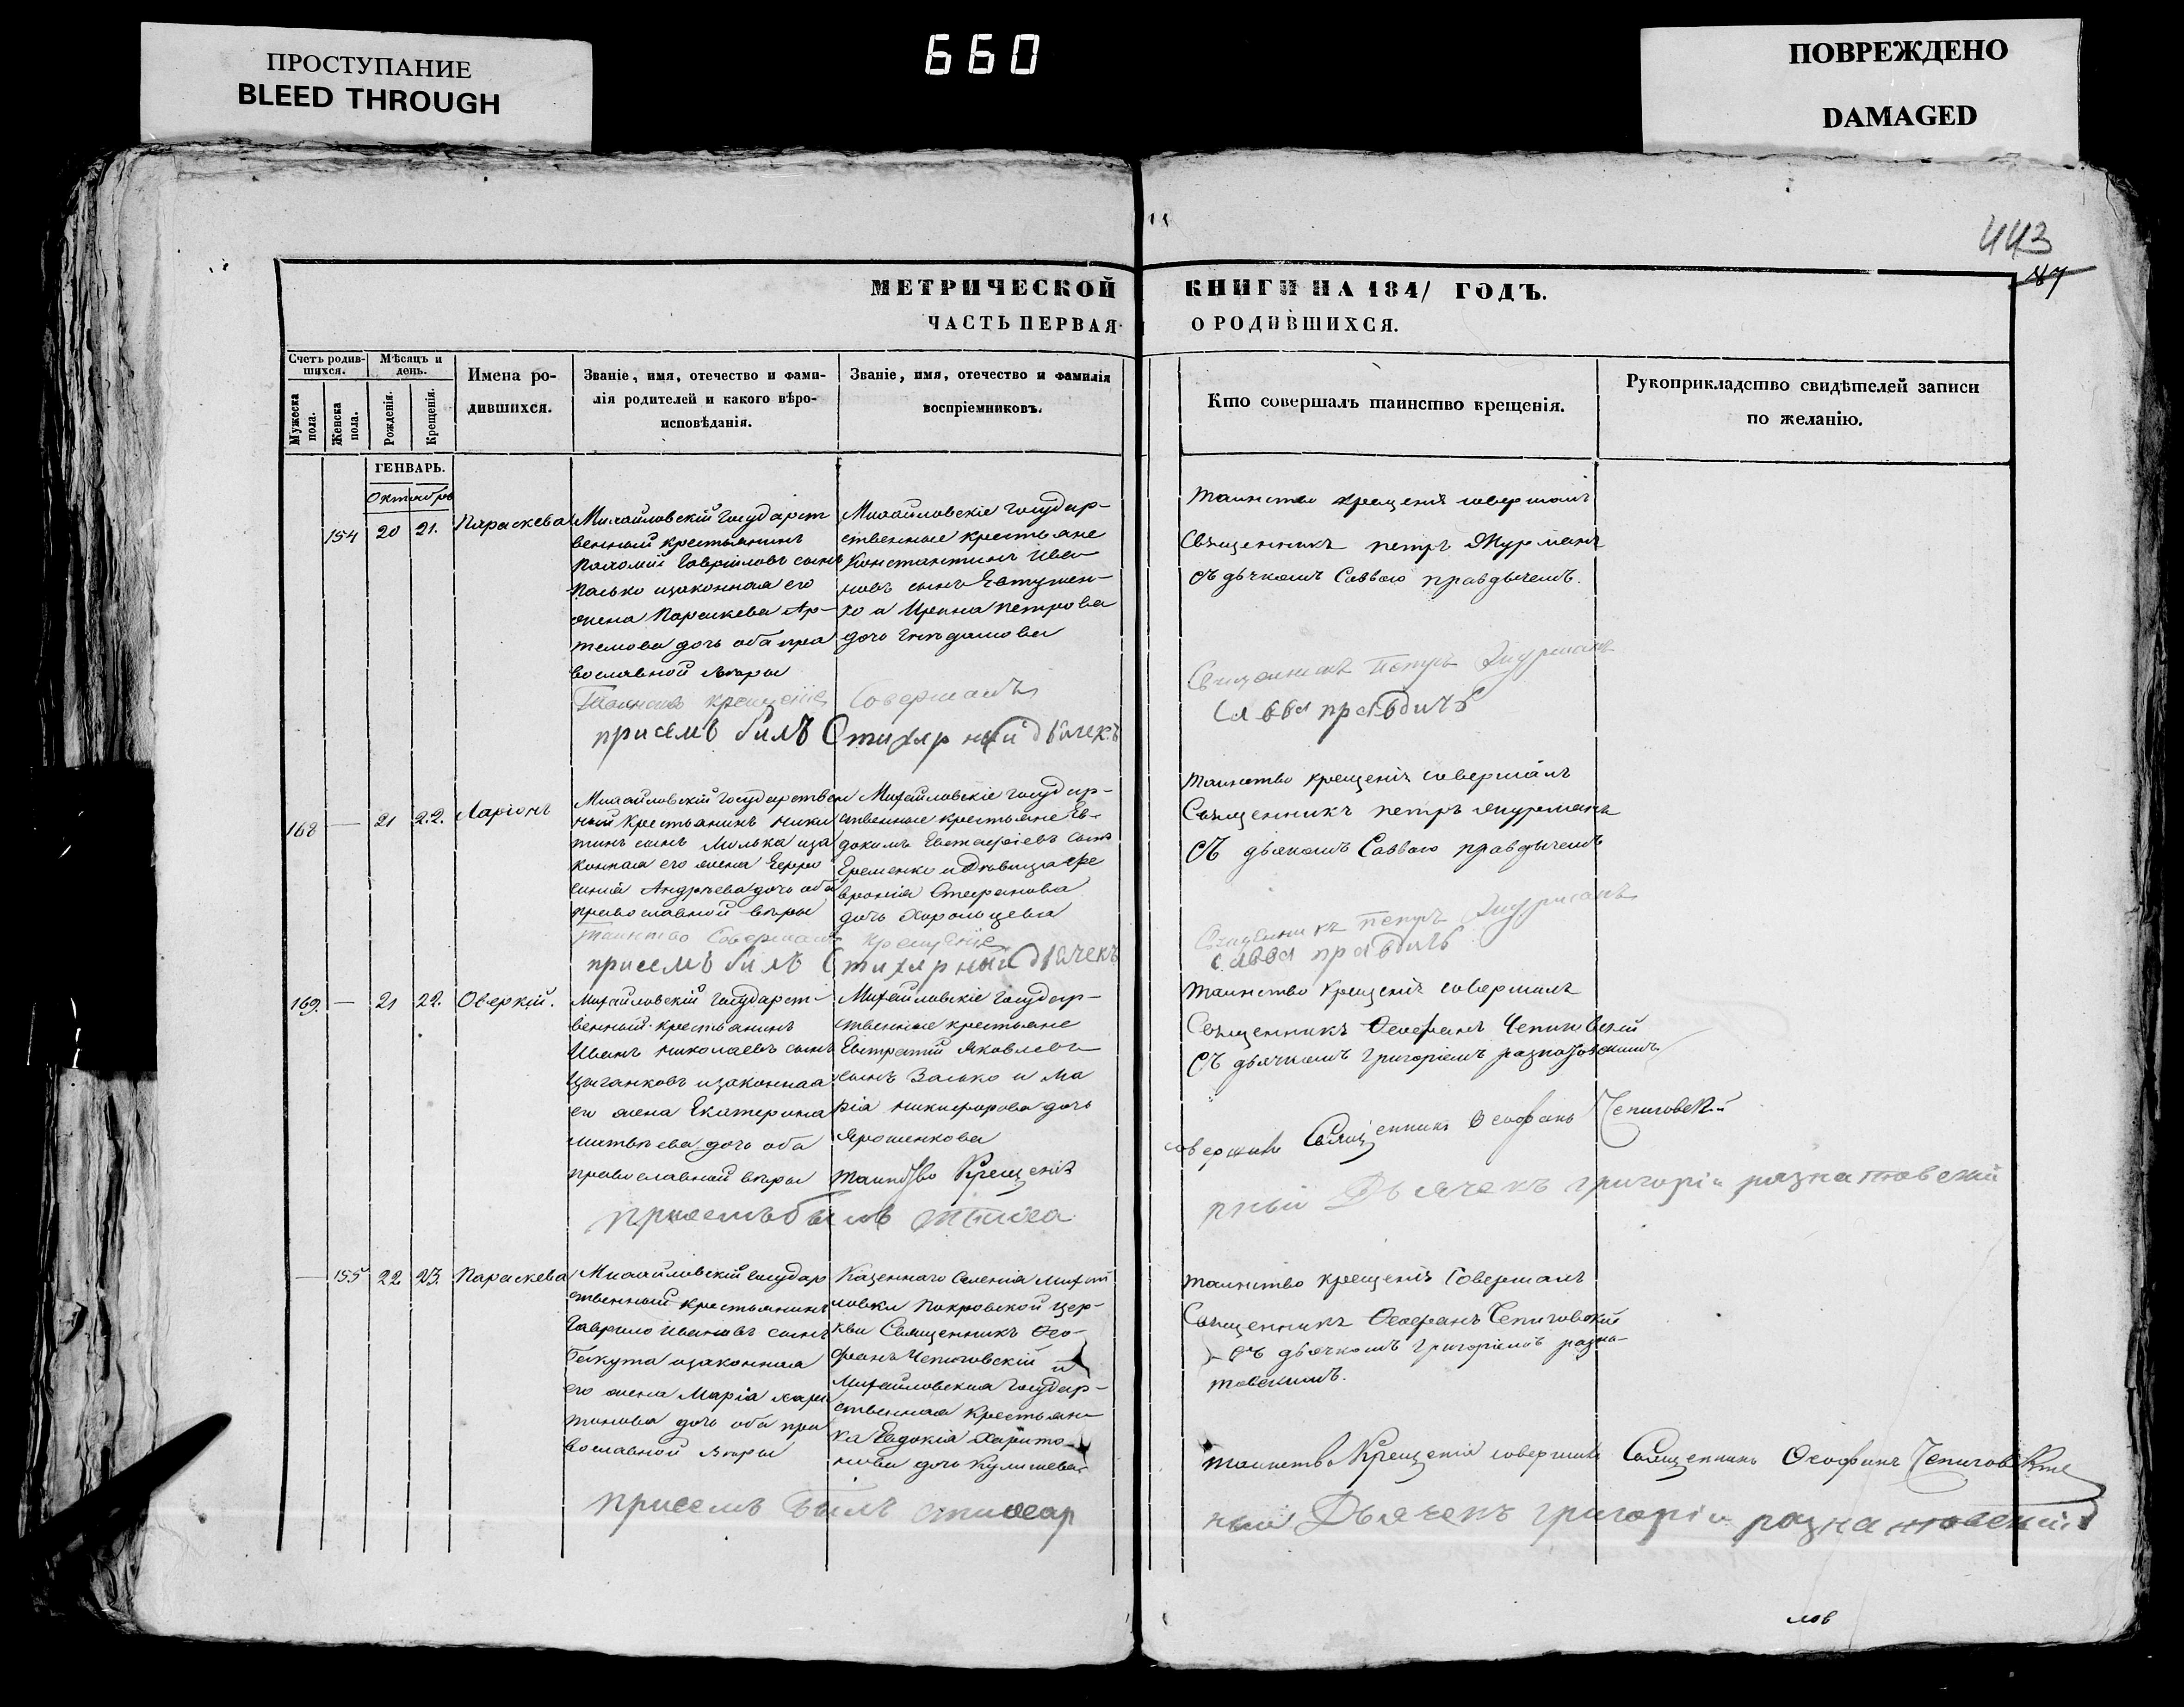 ПРОСТУПАНИЕ
BLEED THROUGH
660
ПОВРЕЖДЕНО
DAMAGED
443
87
МЕТРИЧЕСКОЙ КНИГИ НА 1841 ГОДЪ.
ЧАСТЬ ПЕРВАЯ О РОДИВШИХСЯ.
Счетъ родив-
шихся.
Мужеска
пола.
Женска
пола.
Мѣсяцъ и
день.
Рожденія.
Крещенія.
Имена ро-
дившихся.
Званіе, имя, отечество и фами-
лія родителей и какого вѣро-
исповѣданія.
Званіе, имя, отечество и фамилія
воспріемниковъ.
Кто совершалъ таинство крещенія.
Рукоприкладство свидѣтелей записи
по желанію.
ГЕНВАРЬ.
Октября
154 20 21. Параскева
Михайловскій государст
венный крестьянинъ
Пахомій Гавріиловъ сынъ
Палько изаконная его
жена Параскева Ар-
темова дочь оба пра
вославной вѣры
Михайловскіе государ-
ственные крестьяне
Константинъ Ива
новъ сынъ Евтушен-
ко и Ирина Петрова
дочь
Таинство крещенія совершалъ
Священникъ Петръ Журманъ
съ дьчкомъ Саввою Правдичемъ.
Таинство крещенія Совершалъ
Священникъ Петръ Журманъ
присемъ билъ Стихарный дьячекъ
Савва правдичъ
168 — 21 22. Ларіонъ
Михайловскій государствен
ный крестьянинъ Ники
тинъ сынъ иза
конная его жена Ефро
синія Андрѣева дочь оба
православной вѣры
Михайловскіе государ-
ственные крестьяне Ев-
докимъ Евстафіевъ сынъ
Еременко и Дѣвица Фе
вронія Стефанова
дочь
Таинство крещенія совершалъ
Священникъ Петръ Журманъ
Съ дьякомъ Саввою Правдичемъ
Таинство Совершалъ крещенія
Священникъ Петръ Журманъ
присемъ билъ Стихарный дьячекъ
савва правдичъ
169. — 21 22. Оверкій.
Михайловскій государст-
венный крестьянинъ
Иванъ Николаевъ сынъ
Цыганковъ изаконная
его жена Екатерина
Матвѣева дочь оба
православной вѣры
Михайловскіе государ-
ственные крестьяне
Евстратій Яковлевъ
сынъ Залько и Ма
рія Никифорова дочь
Ярошенкова
Таинство крещенія совершалъ
Священникъ Феофанъ Чепиговскій
Съ дьячкомъ Григоріемъ разнатовскимъ.
таинство Крещенія
совершилъ Священникъ Феофанъ Чепиговскій
присемъ былъ стиха
рный Дьячекъ григорій разнатовскій
— 155 22 23. Параскева
Михайловскій государ
ственный крестьянинъ
Гаврило Ивановъ сынъ
Гакута изаконная
его жена Марія Хари
тонова дочь оба пра
вославной вѣры
Казеннаго Селенія Михай
ловки Покровской цер-
кви Священникъ Фео-
фанъ Чепиговскій и
Михайловская государ-
ственная крестьян-
ка Евдокія Харито-
нова дочь Кулишева
Таинство крещенія Совершалъ
Священникъ Феофанъ Чепиговскій
Съ дьячкомъ Григоріемъ разна-
товскимъ.
таинство Крещенія совершилъ Священникъ Феофанъ Чепиговскій
присемъ былъ стихар
ный Дьячекъ григорій разнатовскій
лов